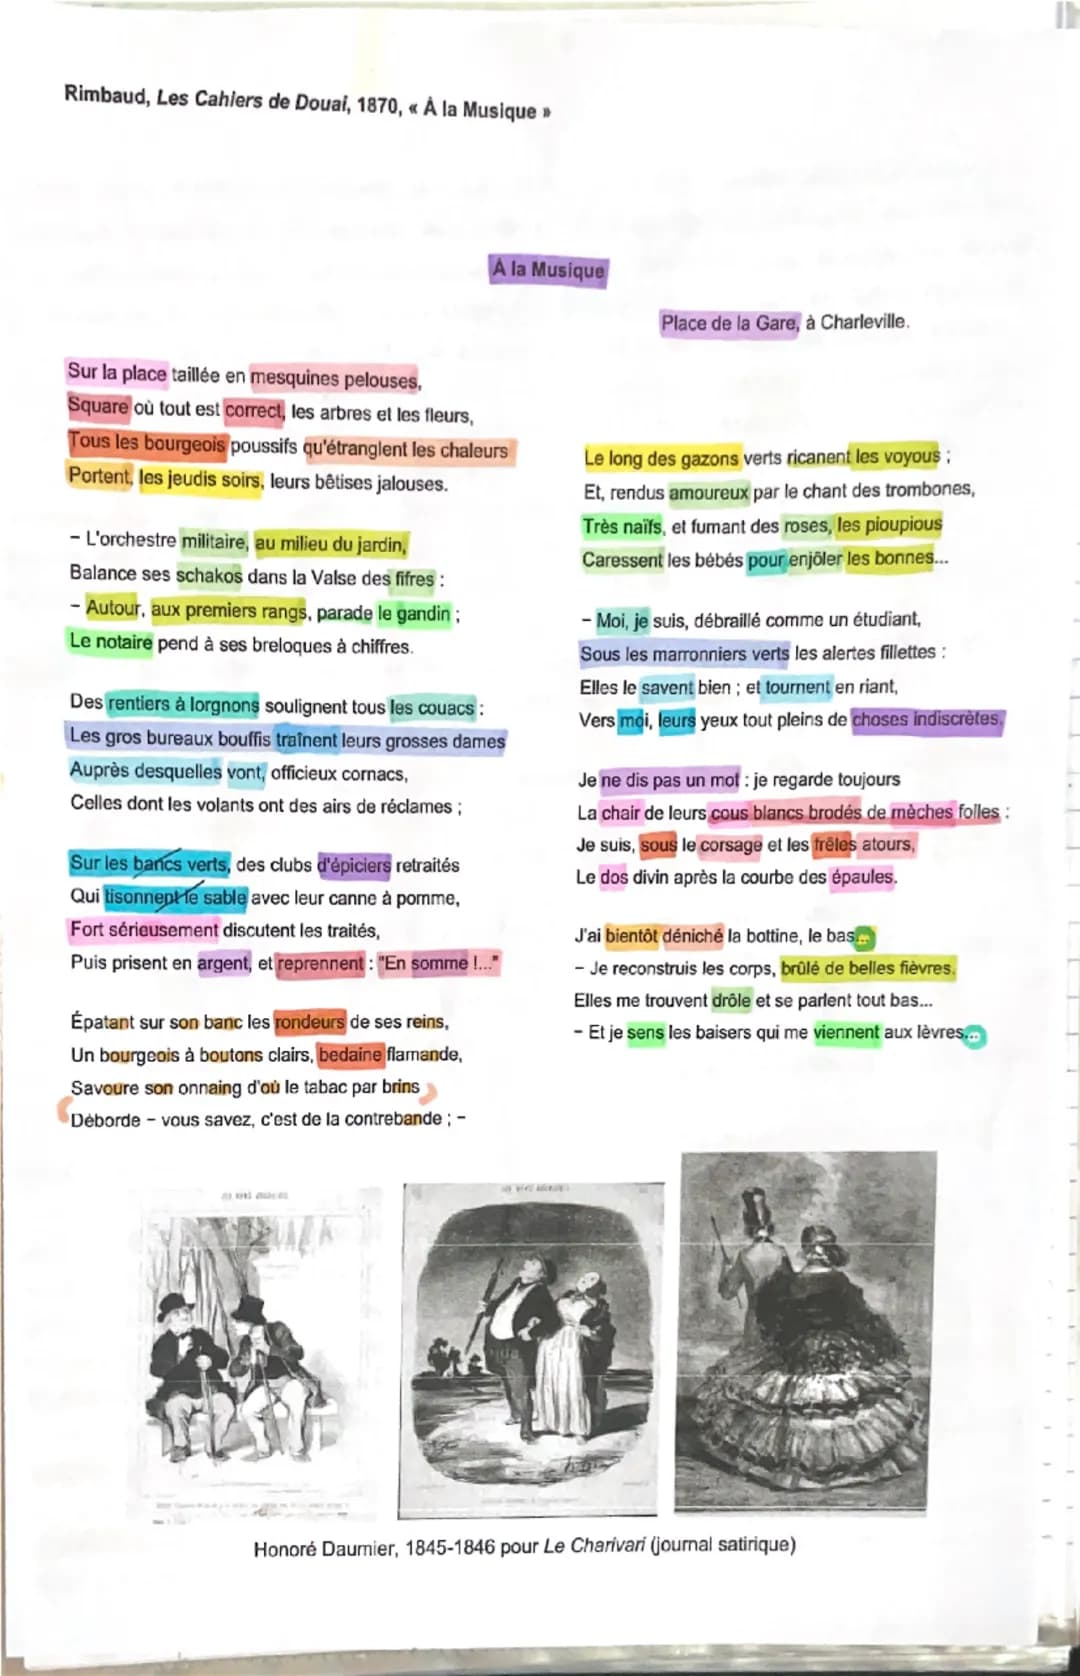 Rimbaud, Les Cahiers de Douai, 1870, « À la Musique »
À la Musique
Place de la Gare, à Charleville.
Sur la place taillée en mesquines pelouses,
Square où tout est correct, les arbres et les fleurs,
Tous les bourgeois poussifs qu'étranglent les chaleurs
Portent, les jeudis soirs, leurs bêtises jalouses.
- L'orchestre militaire, au milieu du jardin,
Balance ses schakos dans la Valse des fifres :
- Autour, aux premiers rangs, parade le gandin ;
Le notaire pend à ses breloques à chiffres.
Des rentiers à lorgnons soulignent tous les couacs :
Les gros bureaux bouffis traînent leurs grosses dames
Auprès desquelles vont, officieux cornacs,
Celles dont les volants ont des airs de réclames ;
Sur les bancs verts, des clubs d'épiciers retraités
Qui tisonnent le sable avec leur canne à pomme,
Fort sérieusement discutent les traités,
Puis prisent en argent, et reprennent : "En somme !..."
Épatant sur son banc les rondeurs de ses reins,
Un bourgeois à boutons clairs, bedaine flamande,
Savoure son onnaing d'où le tabac par brins
Déborde – vous savez, c'est de la contrebande ; –
Le long des gazons verts ricanent les voyous ;
Et, rendus amoureux par le chant des trombones,
Très naïfs, et fumant des roses, les pioupious
Caressent les bébés pour enjôler les bonnes...
- Moi, je suis, débraillé comme un étudiant,
Sous les marronniers verts les alertes fillettes :
Elles le savent bien ; et tournent en riant,
Vers moi, leurs yeux tout pleins de choses indiscrètes.
Je ne dis pas un mot : je regarde toujours
La chair de leurs cous blancs brodés de mèches folles :
Je suis, sous le corsage et les frêles atours,
Le dos divin après la courbe des épaules.
J'ai bientôt déniché la bottine, le bas...
- Je reconstruis les corps, brûlé de belles fièvres.
Elles me trouvent drôle et se parlent tout bas...
- Et je sens les baisers qui me viennent aux lèvres...
Honoré Daumier, 1845-1846 pour Le Charivari (journal satirique)